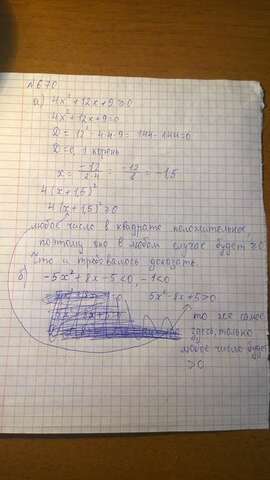 №670
а) 4x²+12x+9≥0
4x²+12x+9=0
D = 12² - 4·4·9 = 144-144=0
D=0, 1 корень
x = -12/2·4 = -12/8 = -1,5
4(x+1,5)²
4(x+1,5)²≥0
любое число в квадрате положительное,
поэтому оно в любом случае будет ≥0
Что и требовалось доказать
б) -5x²+8x-5<0, -1<0
5x²-8x+5>0
то же самое
здесь, только
любое число будет
>0